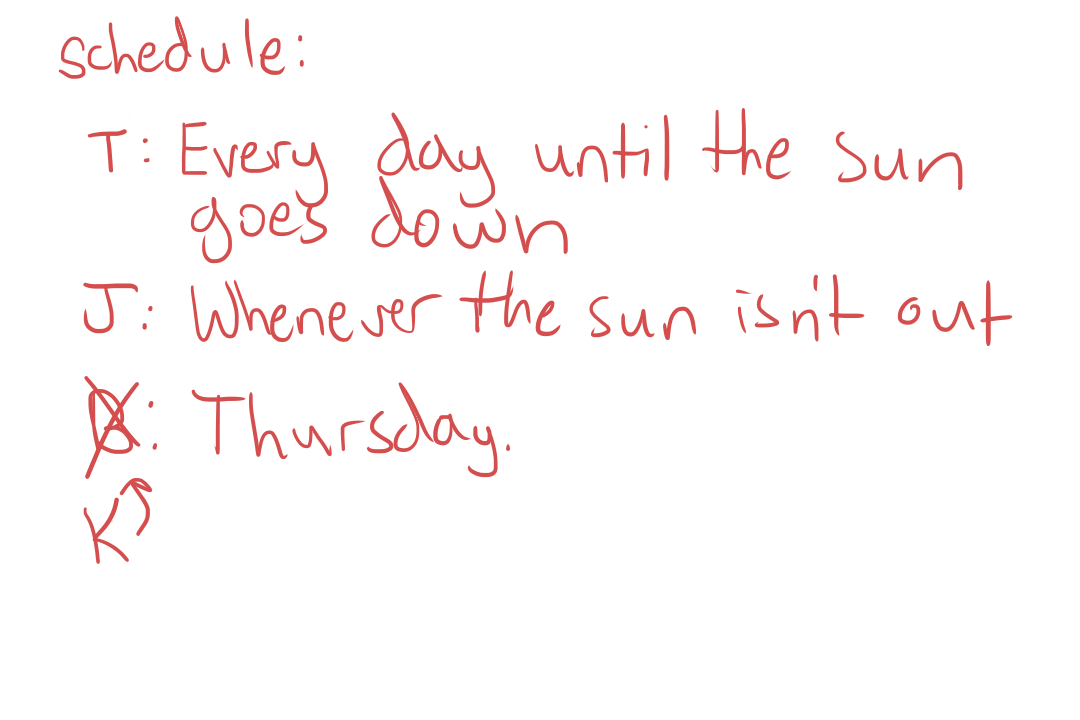 schedule:
T: Every day until the sun
goes down
J: Whenever the sun isn't out
B: Thursday.
K